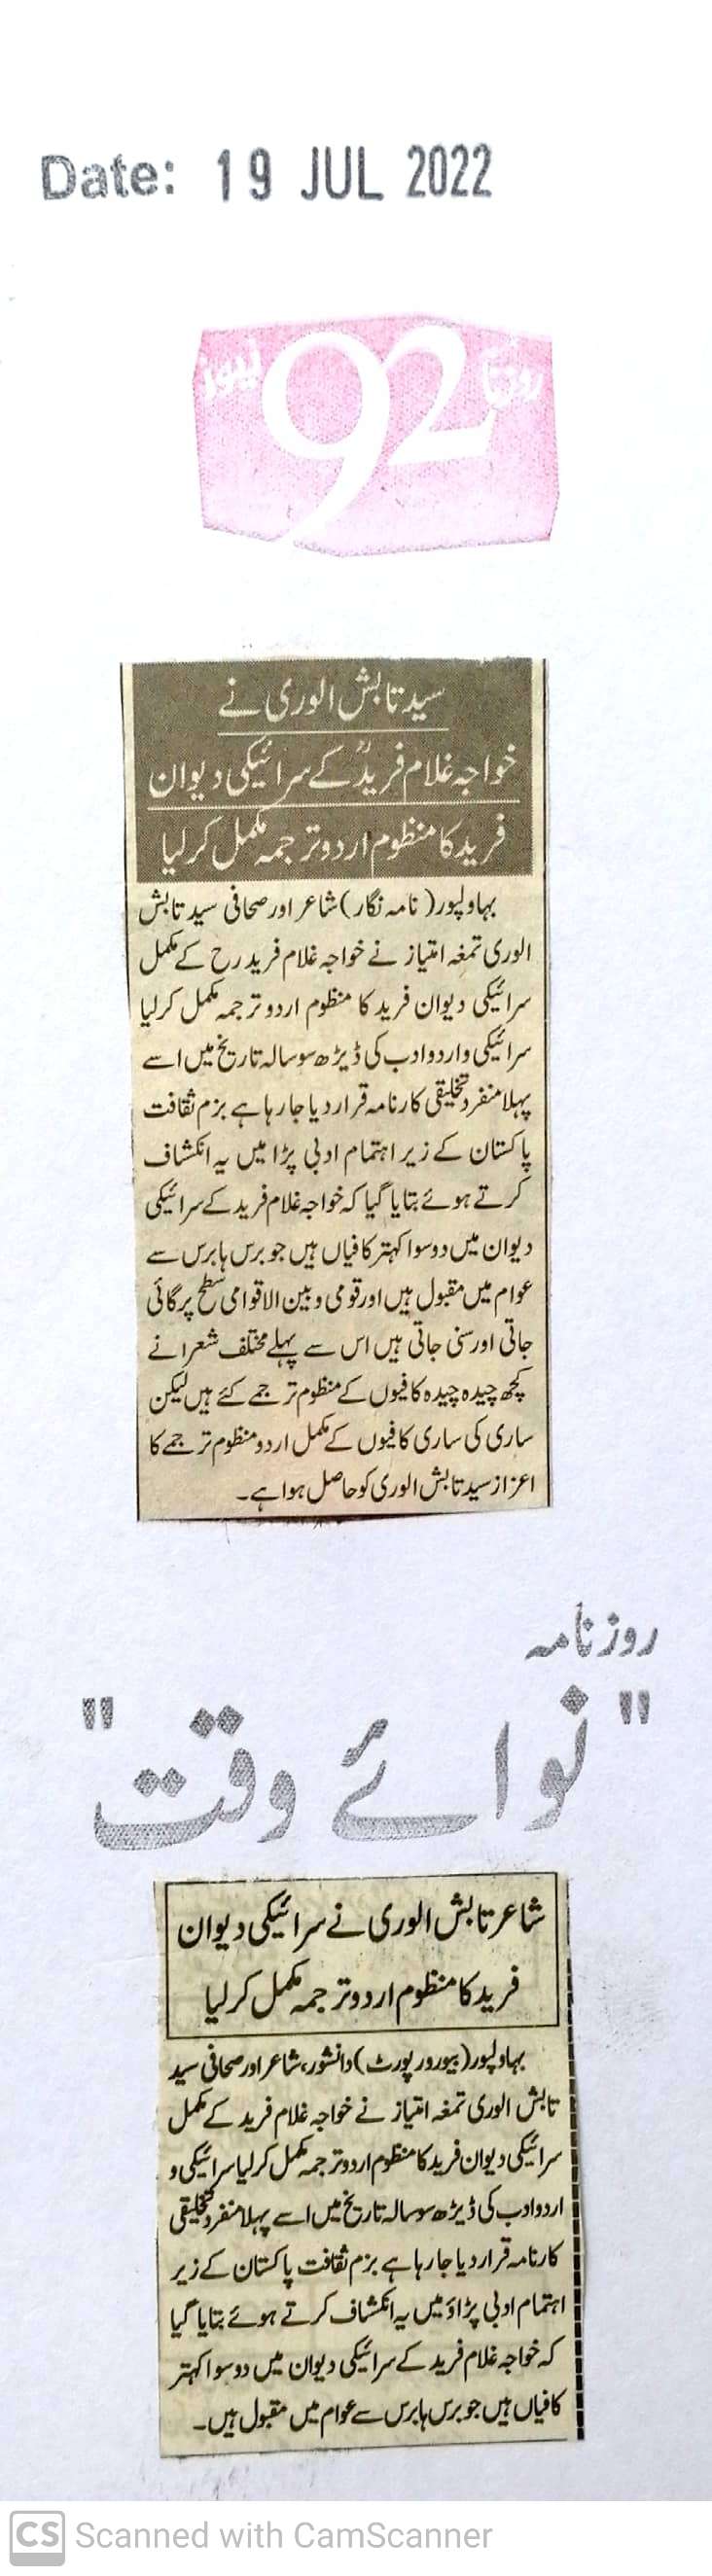 Date: 19 JUL 2022
روزنامہ 92 نیوز
سید تابش الوری نے
خواجہ غلام فریدؒ کے سرائیکی دیوان
فرید کا منظوم اردو ترجمہ مکمل کر لیا
بہاولپور (نامہ نگار) شاعر اور صحافی سید تابش
الوری تمغہ امتیاز نے خواجہ غلام فرید رح کے مکمل
سرائیکی دیوان فرید کا منظوم اردو ترجمہ مکمل کر لیا
سرائیکی و اردو ادب کی ڈیڑھ سو سالہ تاریخ میں اسے
پہلا منفرد تخلیقی کارنامہ قرار دیا جا رہا ہے بزم ثقافت
پاکستان کے زیر اہتمام ادبی پڑا میں یہ انکشاف
کرتے ہوئے بتایا گیا کہ خواجہ غلام فرید کے سرائیکی
دیوان میں دو سو اکہتر کافیاں ہیں جو برس ہا برس سے
عوام میں مقبول ہیں اور قومی و بین الاقوامی سطح پر گائی
جاتی اور سنی جاتی ہیں اس سے پہلے مختلف شعرا نے
کچھ چیدہ چیدہ کافیوں کے منظوم ترجمے کئے ہیں لیکن
ساری کی ساری کافیوں کے مکمل اردو منظوم ترجمے کا
اعزاز سید تابش الوری کو حاصل ہوا ہے۔
روزنامہ
"نوائے وقت"
شاعر تابش الوری نے سرائیکی دیوان
فرید کا منظوم اردو ترجمہ مکمل کر لیا
بہاولپور (بیورو رپورٹ) دانشور، شاعر اور صحافی سید
تابش الوری تمغہ امتیاز نے خواجہ غلام فرید کے مکمل
سرائیکی دیوان فرید کا منظوم اردو ترجمہ مکمل کر لیا سرائیکی و
اردو ادب کی ڈیڑھ سو سالہ تاریخ میں اسے پہلا منفرد تخلیقی
کارنامہ قرار دیا جا رہا ہے بزم ثقافت پاکستان کے زیر
اہتمام ادبی پڑاؤ میں یہ انکشاف کرتے ہوئے بتایا گیا
کہ خواجہ غلام فرید کے سرائیکی دیوان میں دو سو اکہتر
کافیاں ہیں جو برس ہا برس سے عوام میں مقبول ہیں۔
CS Scanned with CamScanner